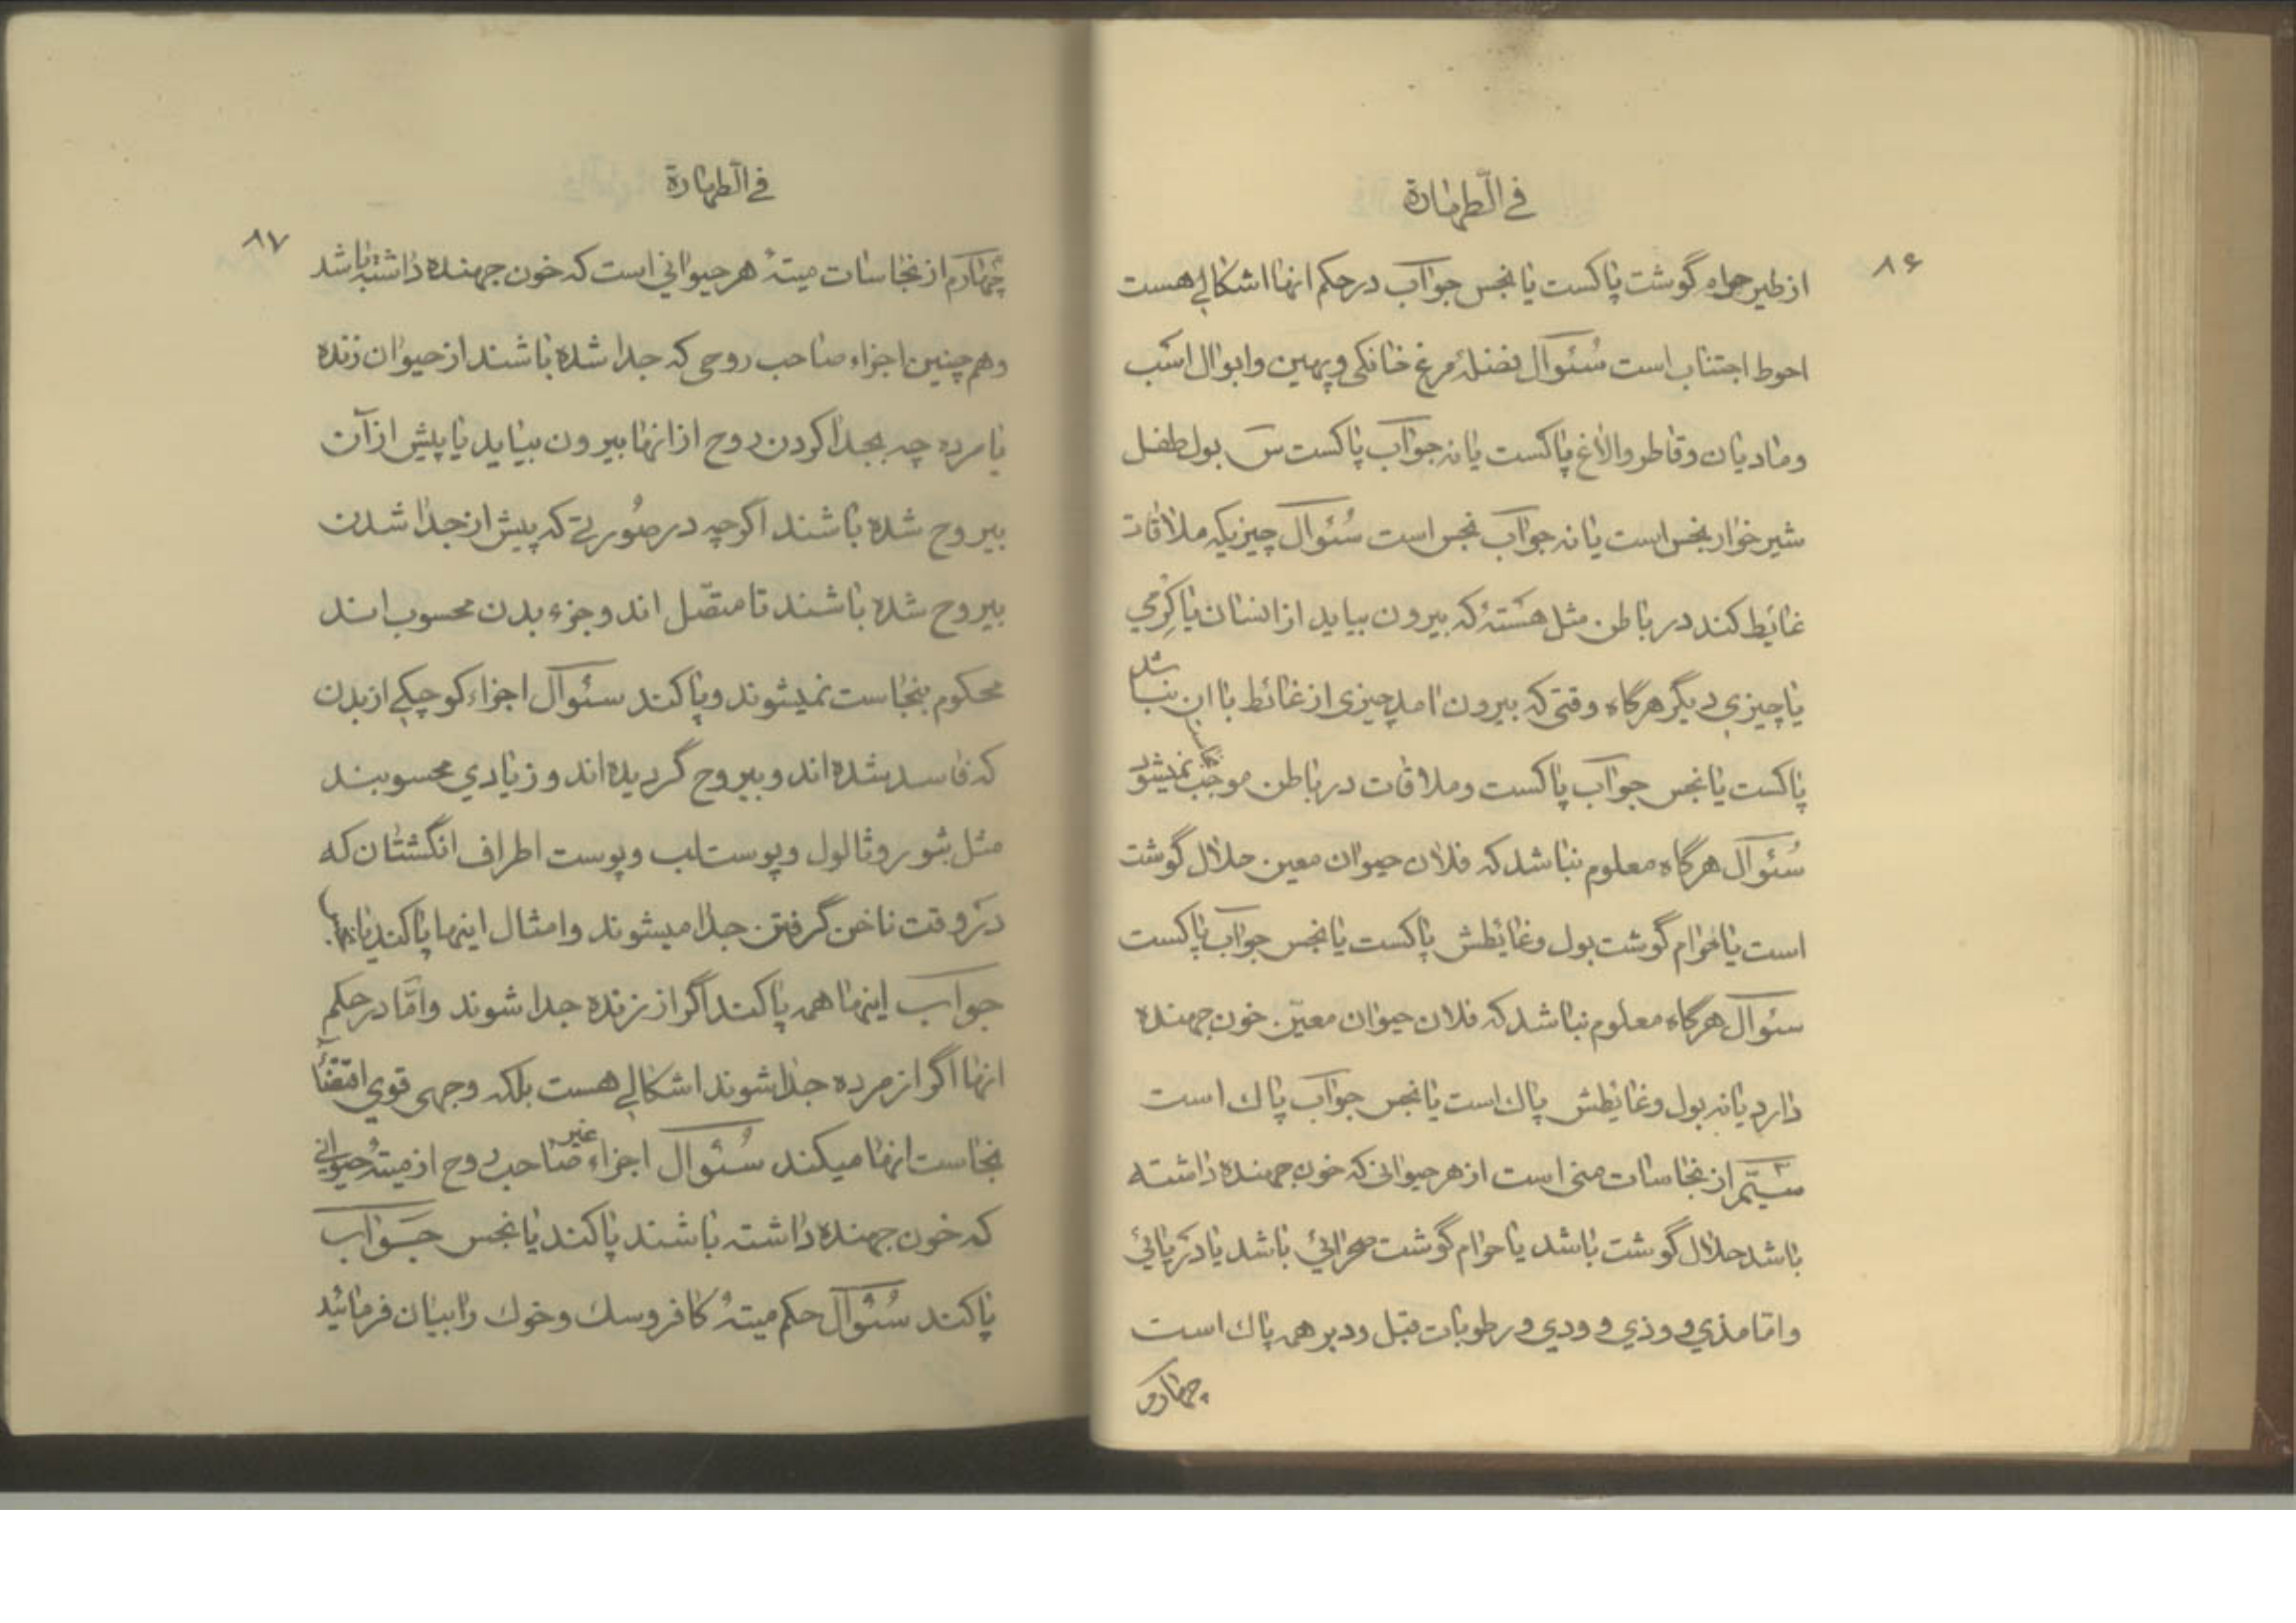 في الطهارة
۸۶
از طیر حرام گوشت پاکست یا نجس جواب در حکم انها اشکالی هست
احوط اجتناب است سُئوال فضلۀ مرغ خانکی و پهین و ابوال اسب
و مادیان و قاطر و الاغ پاکست یا نه جواب پاکست س بول طفل
شیرخوار نجس است یا نه جواب نجس است سُئوال چیزیکه ملاقات
غائط کند در باطن مثل هستۀ که بیرون بیاید از انسان یا کِرْمي
یا چیزي دیگر هرگاه وقتی که بیرون امد چیزی از غائط با ان نباشد
پاکست یا نجس جواب پاکست و ملاقات در باطن موجب نجاست نمیشود
سُئوال هرگاه معلوم نباشد که فلان حیوان معین حلال گوشت
است یا حرام گوشت بول و غائطش پاکست یا نجس جواب پاکست
سئوال هرگاه معلوم نباشد که فلان حیوان معیّن خون جهنده
دارد یا نه بول و غائطش پاك است یا نجس جواب پاك است
سیّم از نجاسات منی است از هر حیوانی که خون جهنده داشته
باشد حلال گوشت باشد یا حرام گوشت صحرائي باشد یا دریائي
و امّا مذي و وذي و ودي و رطوبات قبل و دبر همه پاك است
چهارم
في الطهارة
۸۷
چهارم از نجاسات میتۀ هر حیواني است که خون جهنده داشته باشد
و هم چنین اجزاء صاحب روحی که جدا شده باشند از حیوان زنده
یا مرده چه بجدا کردن روح از انها بیرون بیاید یا پیش از آن
بیروح شده باشند اگرچه در صُورتي که پیش از جدا شدن
بیروح شده باشند تا متصّل اند و جزء بدن محسوب اند
محکوم بنجاست نمیشوند و پاکند سئوال اجزاء کوچکي از بدن
که فاسد شده اند و بیروح گردیده اند و زیادي محسوبند
مثل بثور و ثالول و پوست لب و پوست اطراف انگشتان که
در وقت ناخن گرفتن جدا میشوند و امثال اینها پاکند یا نه
جواب اینها همه پاکند اگر از زنده جدا شوند و امّا در حکم
انها اگر از مرده جدا شوند اشکالي هست بلکه وجهی قوي اقتضاء
نجاست انها میکند سُئوال اجزاء غیر صاحب روح از میتۀ حیوانی
که خون جهنده داشته باشند پاکند یا نجس جَواب
پاکند سُئوال حکم میتۀ کافر و سك و خوك را بیان فرمائید